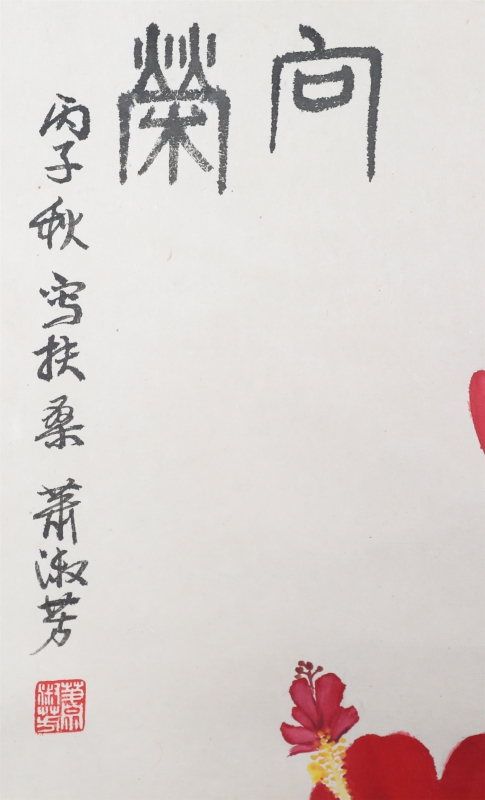 向榮
丙子秋写扶桑 萧淑芳
萧淑芳